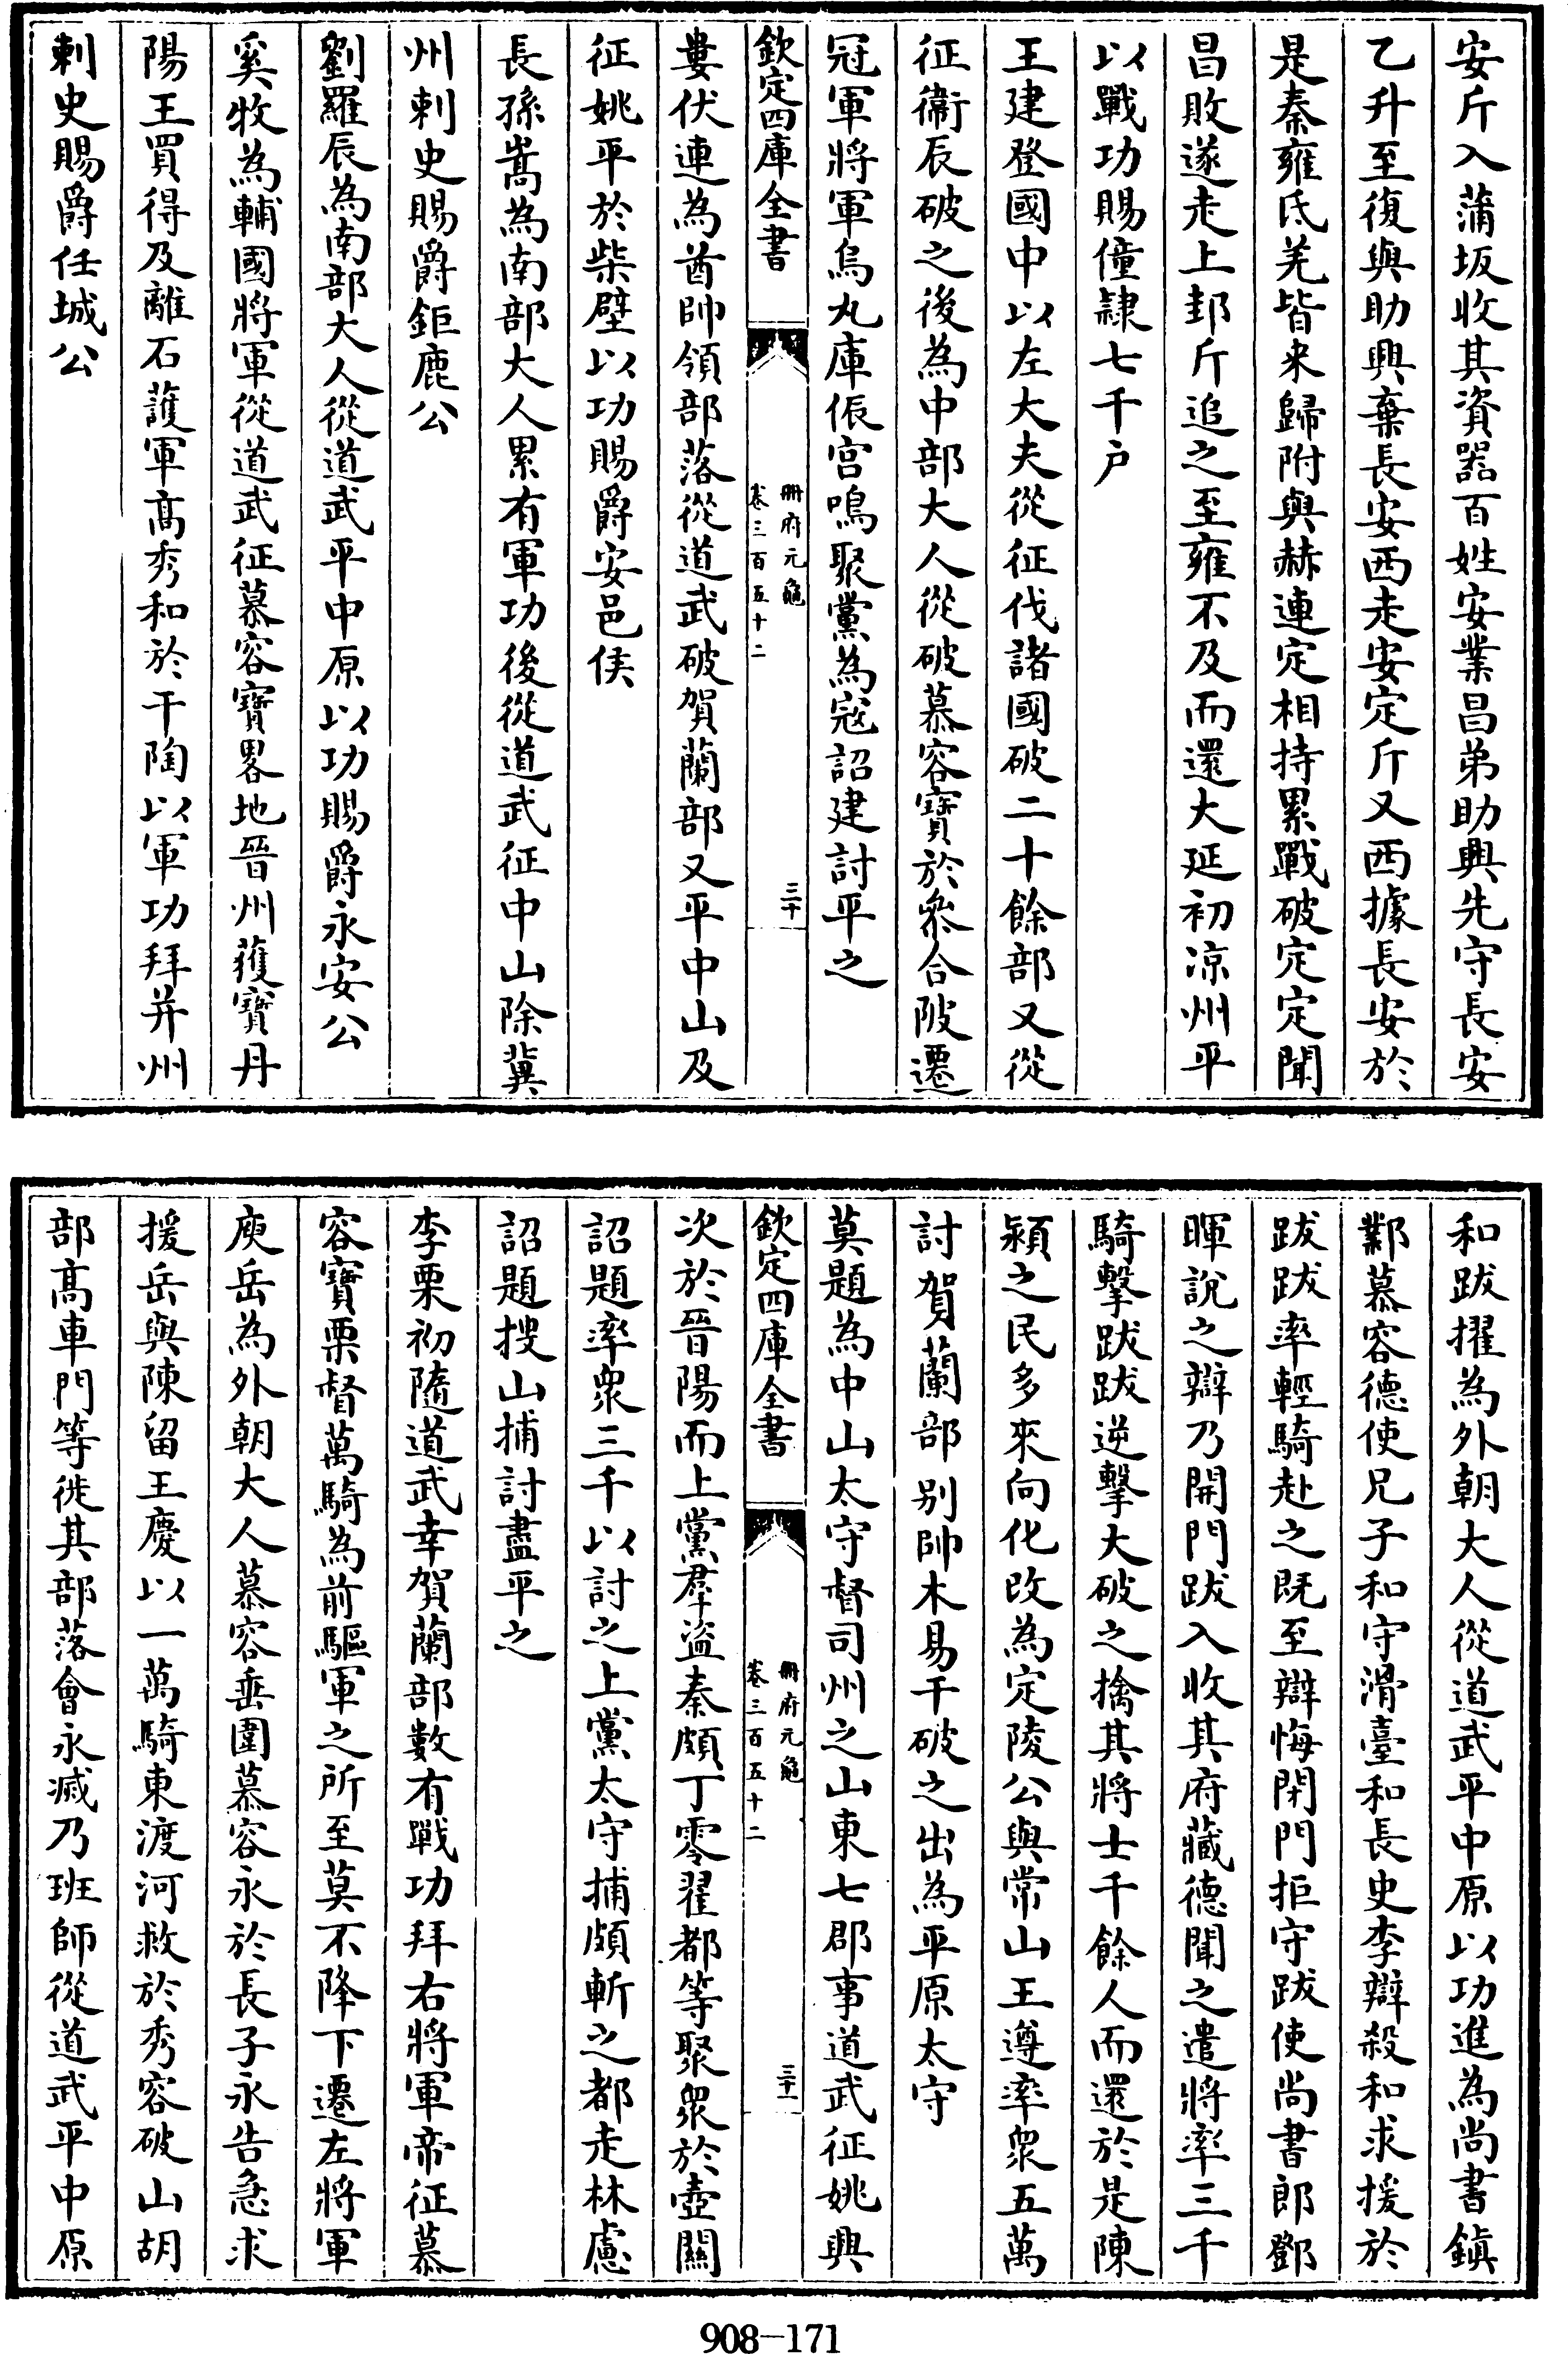 安斤入蒲坂收其資器百姓安業昌弟助興先守長安
乙升至復與助興棄長安西走安定斤又西據長安於
是秦雍氐羌皆来歸附與赫連定相持累戰破定定聞
昌敗遂走上邽斤追之至雍不及而還大延初涼州平
以戰功賜僮隸七千户
王建登國中以左大夫從征伐諸國破二十餘部又從
征衞辰破之後為中部大人從破慕容寶於參合陂遷
冠軍將軍烏丸庫俍宫鳴聚黨為寇詔建討平之
欽定四庫全書
冊府元龜
卷三百五十二
三十
婁伏連為酋帥領部落從道武破賀蘭部又平中山及
征姚平於柴壁以功賜爵安邑侯
長孫嵩為南部大人累有軍功後從道武征中山除冀
州刺史賜爵鉅鹿公
劉羅辰為南部大人從道武平中原以功賜爵永安公
奚牧為輔國將軍從道武征慕容寶畧地晉州獲寶丹
陽王買得及離石護軍髙秀和於平陶以軍功拜并州
刺史賜爵任城公
和跋擢為外朝大人從道武平中原以功進為尚書鎮
鄴慕容德使兄子和守滑臺和長史李辯殺和求援於
跋跋率輕騎赴之既至辯悔閉門拒守跋使尚書郎鄧
暉說之辯乃開門跋入收其府藏德聞之遣將率三千
騎擊跋跋逆擊大破之擒其將士千餘人而還於是陳
潁之民多來向化改為定陵公與常山王遵率衆五萬
討賀蘭部别帥木易干破之出為平原太守
莫題為中山太守督司州之山東七郡事道武征姚興
欽定四庫全書
冊府元龜
卷三百五十二
三十一
次於晉陽而上黨羣盗秦頗丁零翟都等聚衆於壺關
詔題率衆三千以討之上黨太守捕頗斬之都走林慮
詔題搜山捕討盡平之
李栗初隨道武幸賀蘭部數有戰功拜右將軍帝征慕
容寶栗督萬騎為前驅軍之所至莫不降下遷左將軍
庾岳為外朝大人慕容垂圍慕容永於長子永告急求
援岳與陳留王虔以一萬騎東渡河救於秀容破山胡
部髙車門等徙其部落會永滅乃班師從道武平中原
908-171